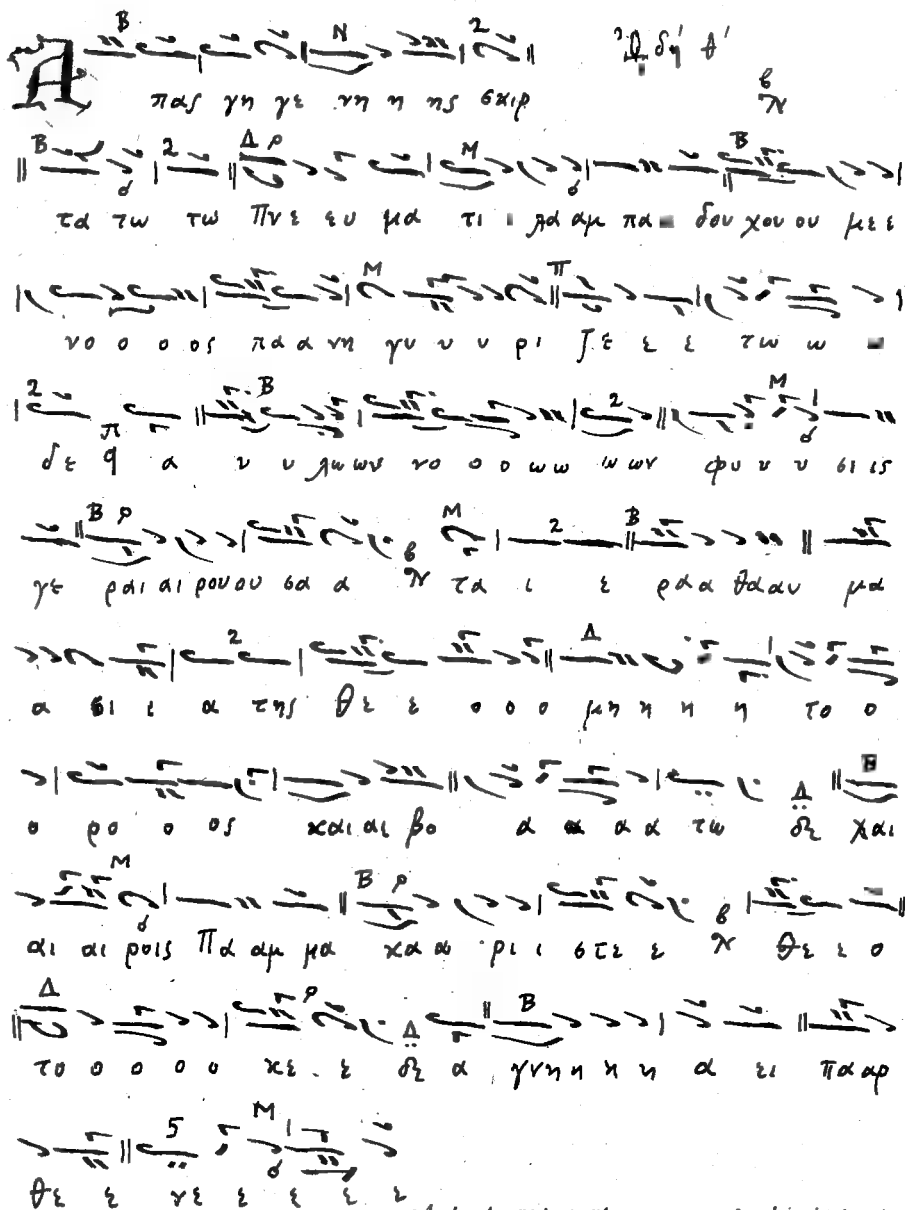 Ὠδή θ'
Α πας γη γε νη η ης σκιρ
τα τω τω Πνε ευ μα τι λα αμ πα δου χου ου με ε
νο ο ο ος πα α νη γυ υ υ ρι ζε ε ε τω ω
δε α υ υ λω ων νο ο ο ω ω ω ων φυ υ υ σι ις
γε ραι αι ρου ου σα α τα ι ε ρα α θα αυ μα
α σι ι α της θε ε ο ο ο μη η η η το ο
ο ρο ο ος και αι βο α α α α τω δε χαι
αι αι ροις Πα αμ μα κα α ρι ι στε ε θε ε ο
το ο ο ο ο κε ε δε α γνη η η η α ει πα αρ
θε ε νε ε ε ε ε